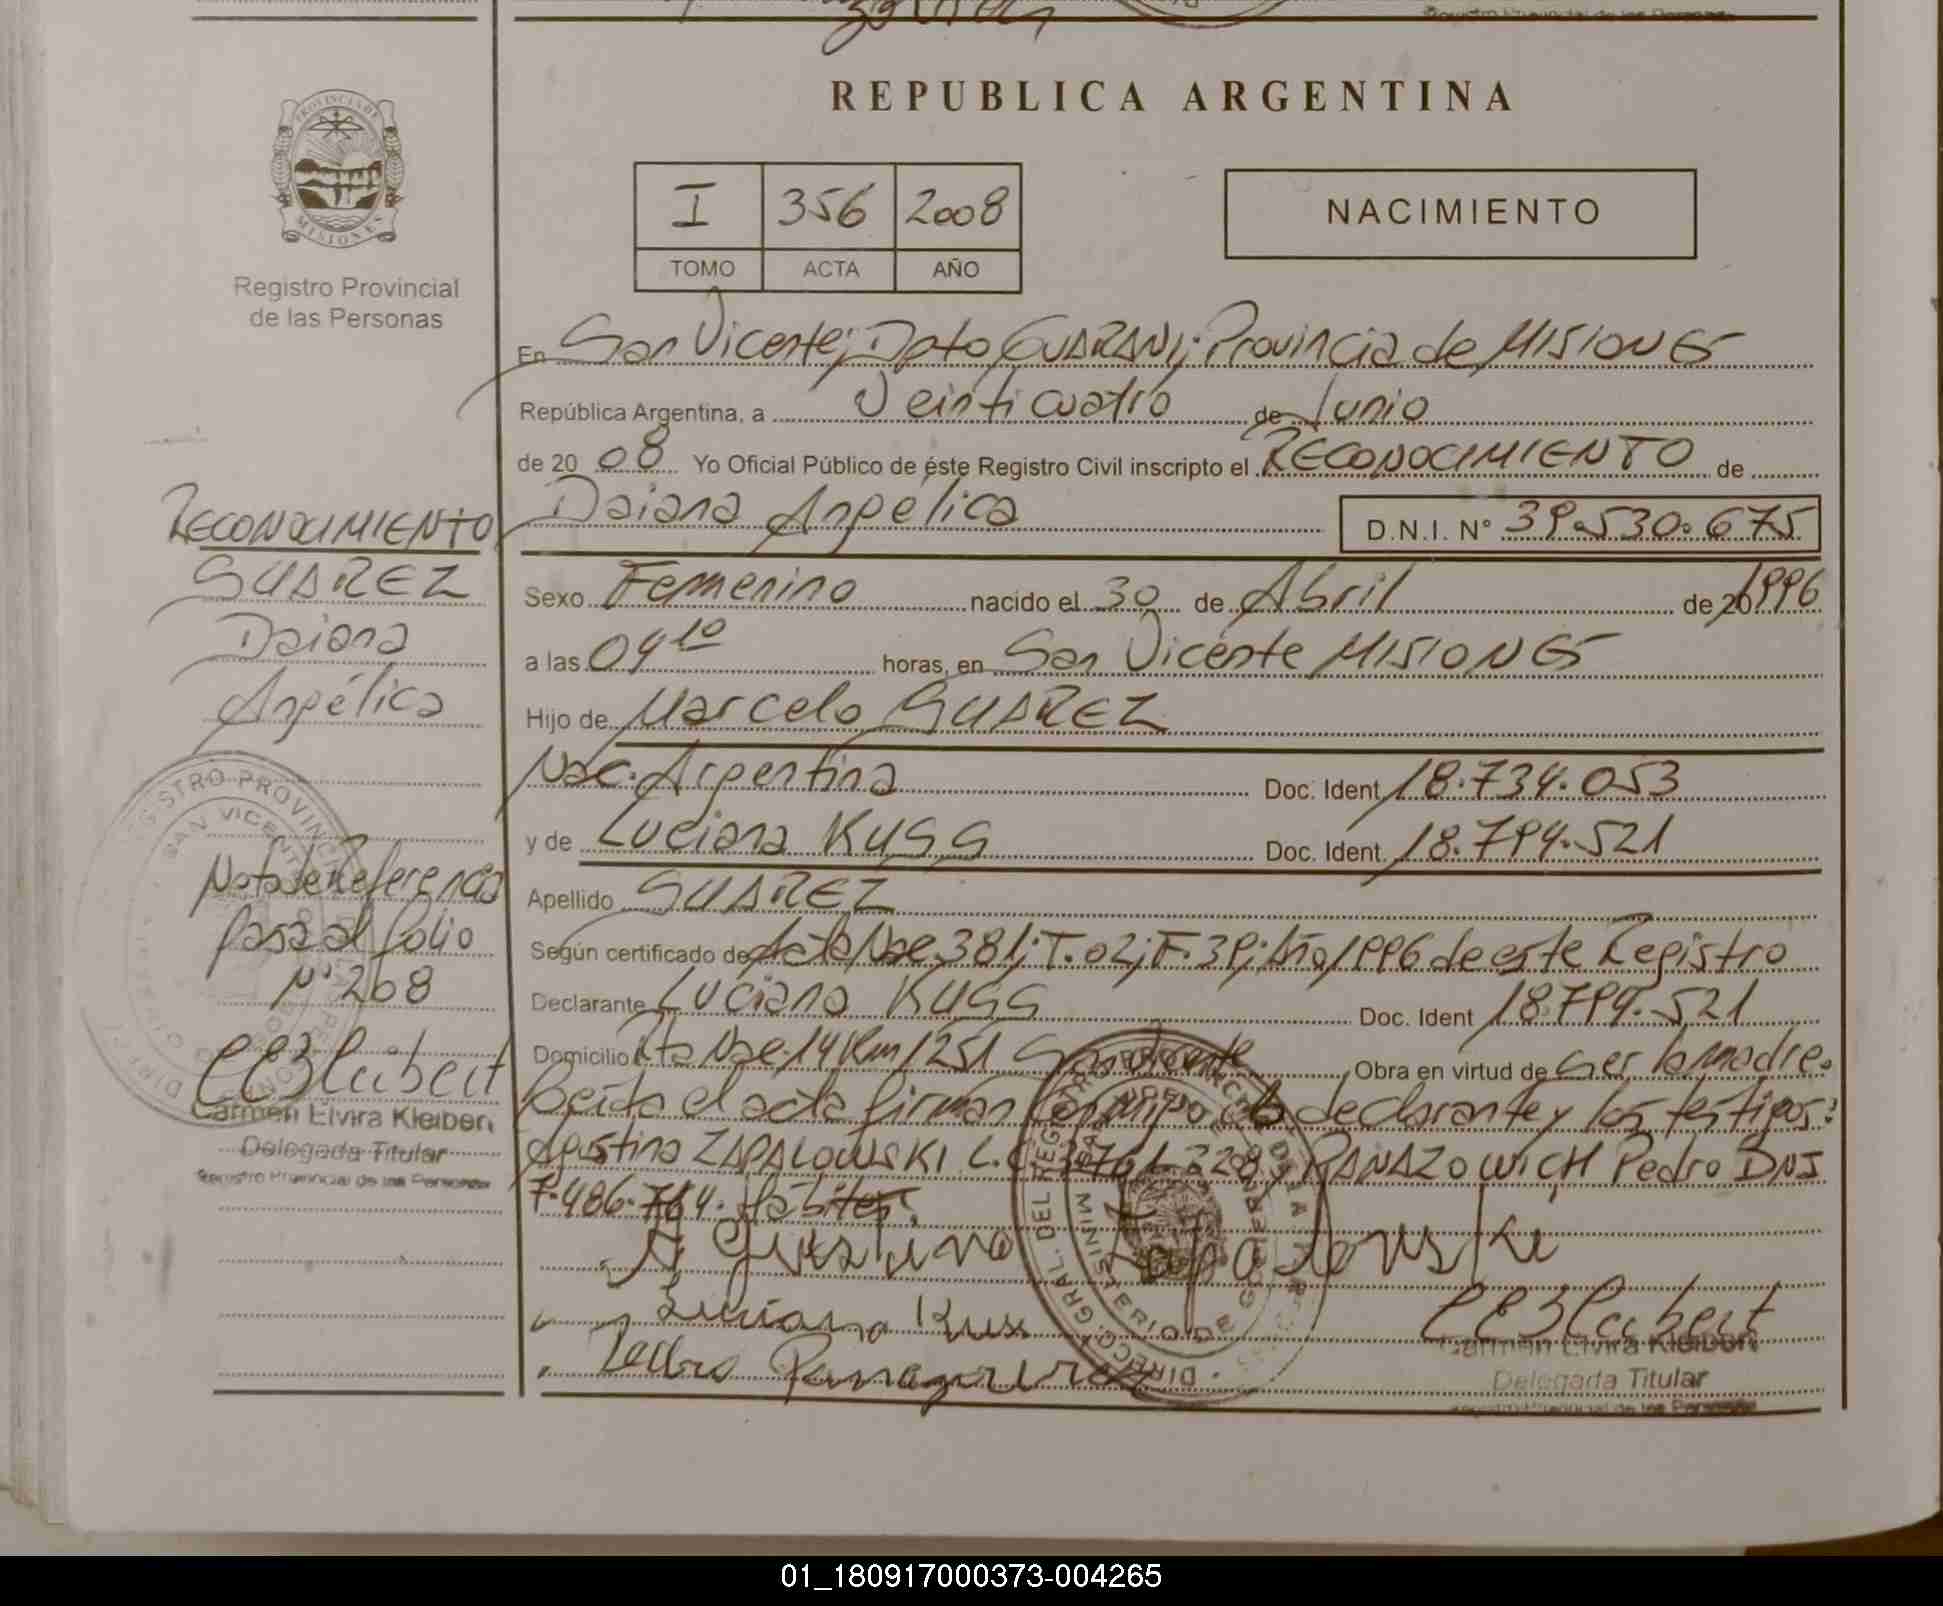 REPUBLICA ARGENTINA
PROVINCIA DE
MISIONES
Registro Provincial
de las Personas
I 356 2008
TOMO ACTA AÑO
NACIMIENTO
En San Vicente; Dpto GUARANI; Provincia de MISIONES
República Argentina, a Veinticuatro de Junio
de 20 08 Yo Oficial Público de éste Registro Civil inscripto el RECONOCIMIENTO de
Daiana Angélica D.N.I. N° 39.530.675
Sexo Femenino nacido el 30 de Abril de 20 1996
a las 04 10 horas, en San Vicente MISIONES
Hijo de Marcelo SUAREZ
Nac. Argentina Doc. Ident 18.734.053
y de Luciana KUSS Doc. Ident. 18.794.521
Apellido SUAREZ
Según certificado de Acta Nac. 381; T. 02; F. 39; Año 1996 de este Registro
Declarante Luciana KUSS Doc. Ident 18.794.521
Domicilio Rta Nac. 14 Km 1251 San Vicente Obra en virtud de ser la madre.
Leída el acta firman conmigo la declarante y los testigos:
Agustina ZAPALOWSKI L.C. y PANAZOWICH Pedro DNI
7.486.764. Hábiles.
Agustina Zapalowski
Luciana Kuss
Pedro
Carmen Elvira Kleibert
Delegada Titular
Registro Provincial de las Personas
RECONOCIMIENTO
SUAREZ
Daiana
Angélica
Nota de Referencia
pasa al folio
N° 268
Carmen Elvira Kleibert
Delegada Titular
Registro Provincial de las Personas
01_180917000373-004265